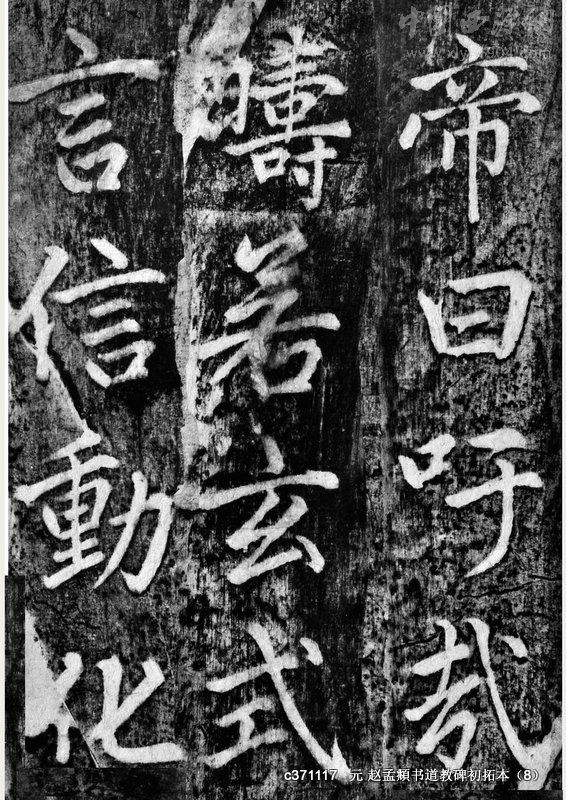 帝曰吁哉
疇若玄式
言信動化
c371117 元 赵孟頫书道教碑初拓本（8）